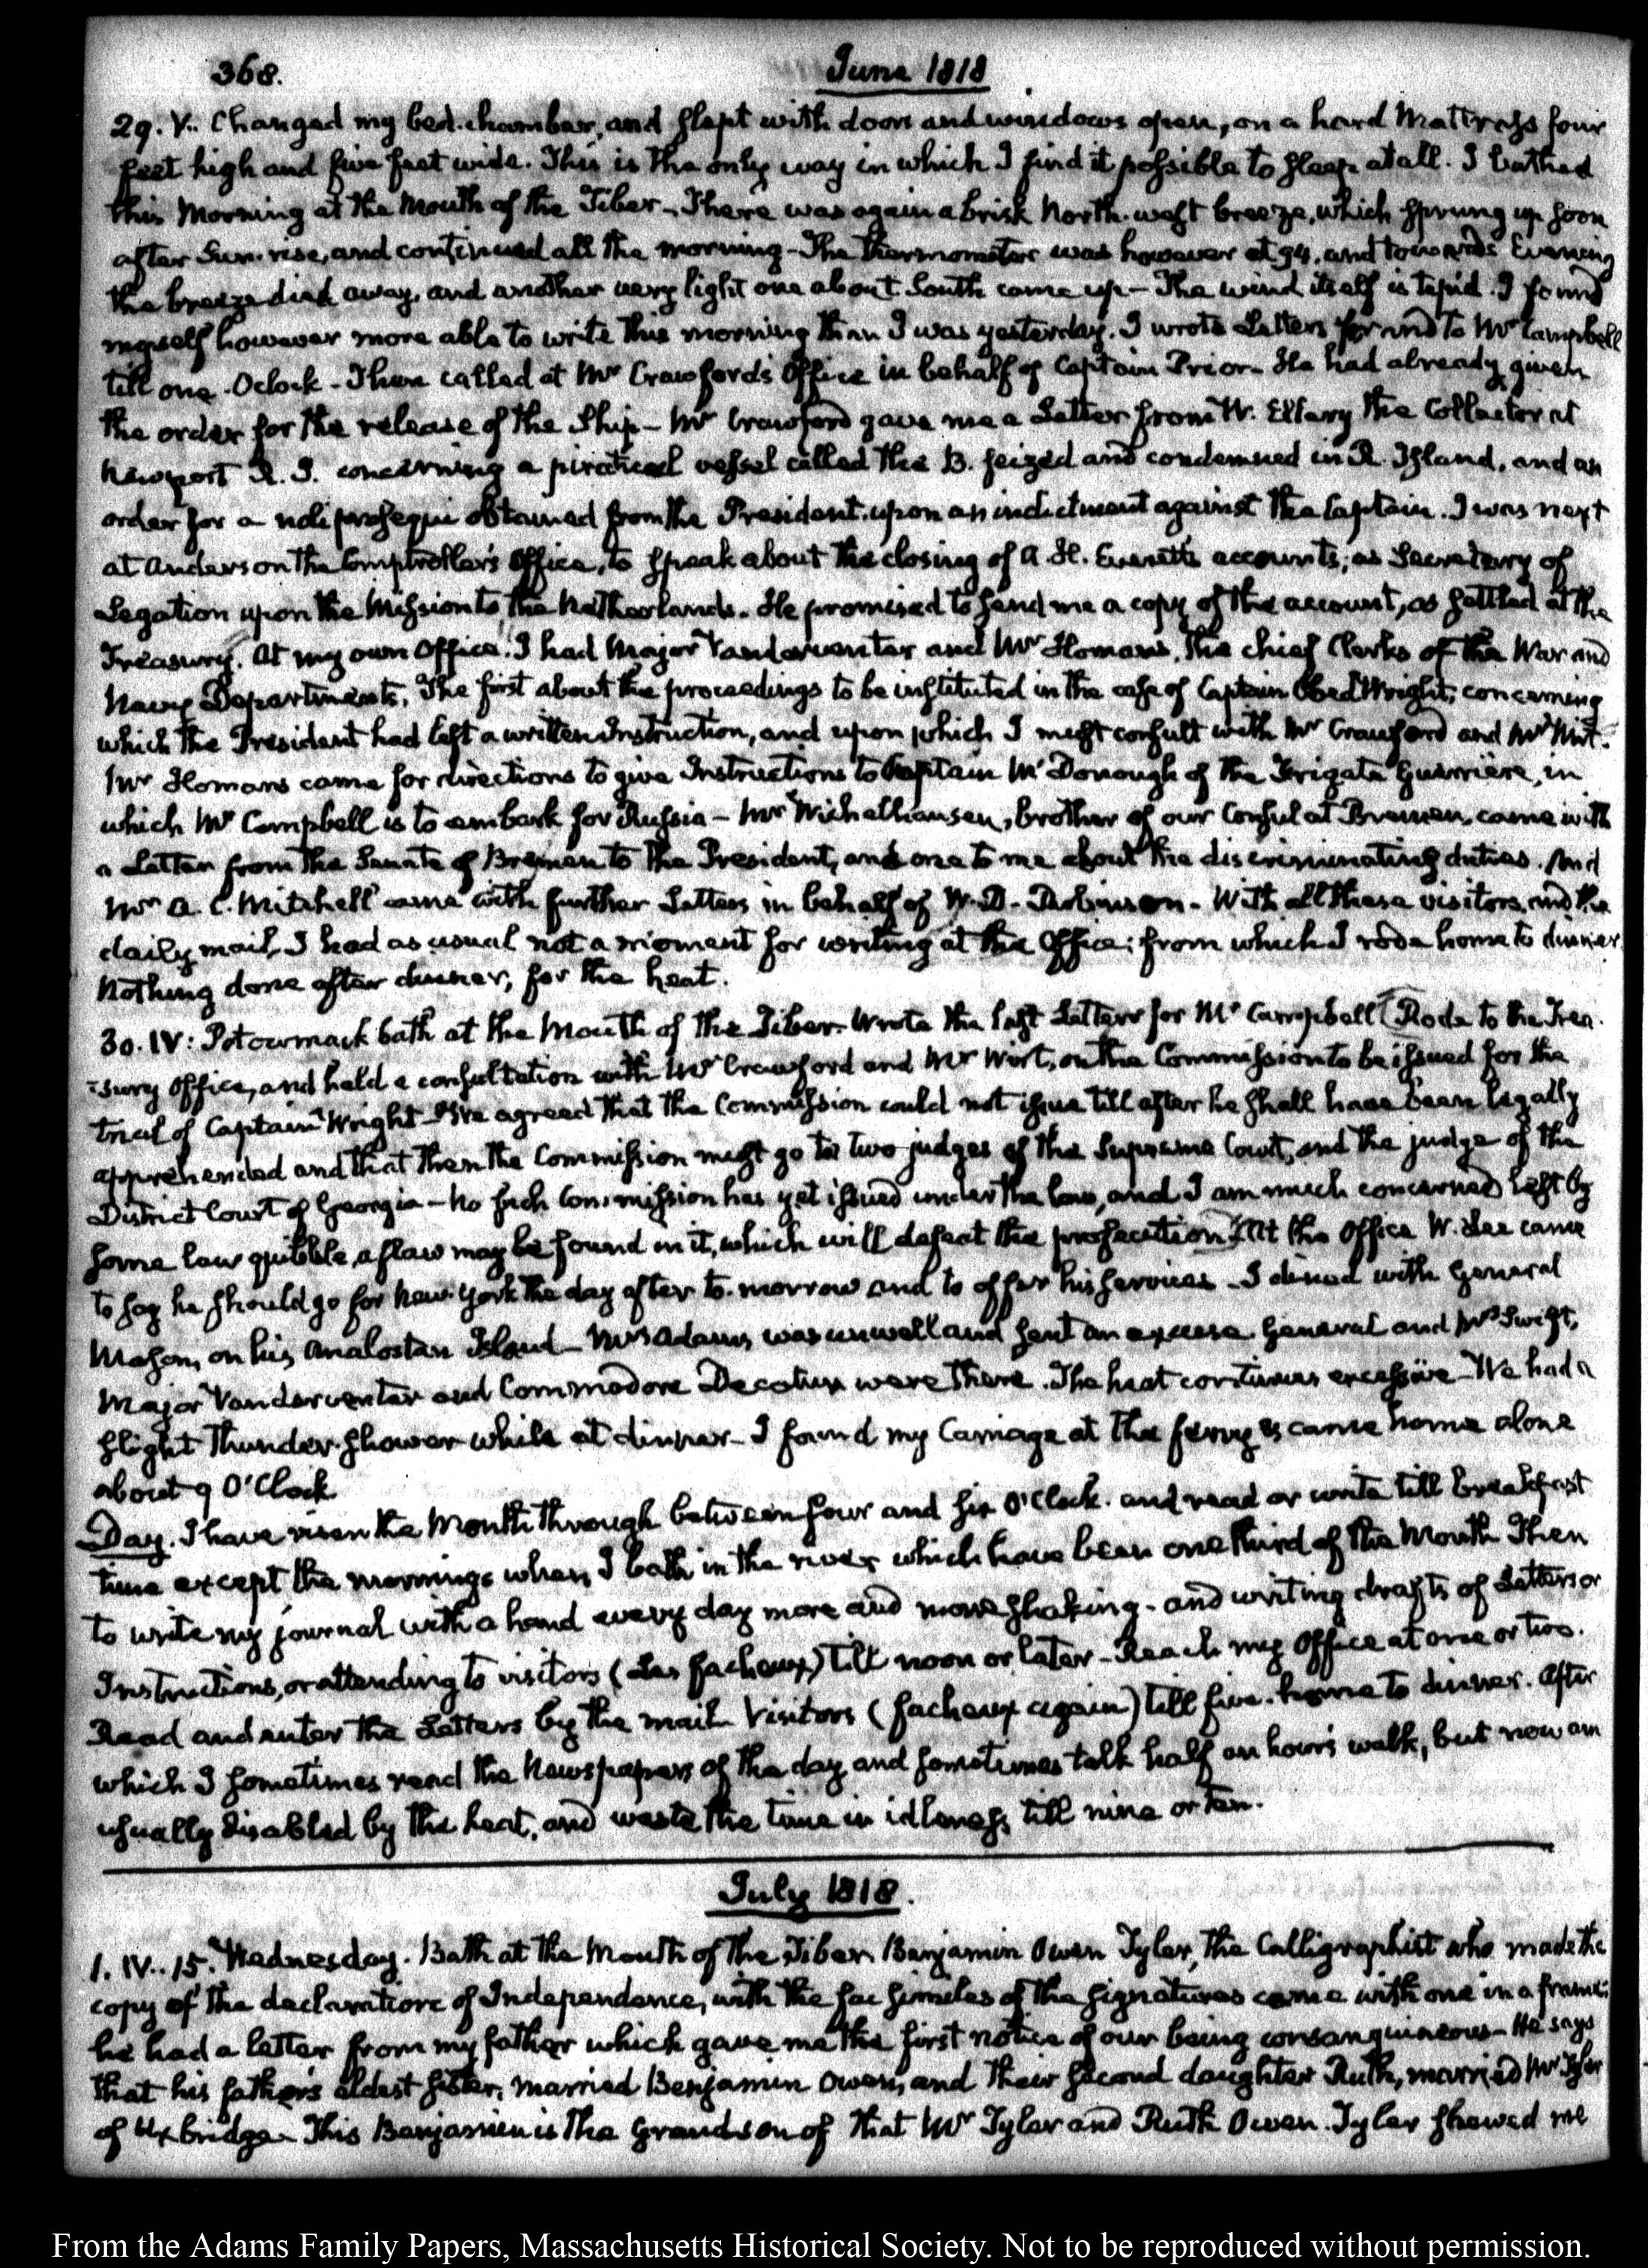 368. June 1818
29. V.. Changed my bed-chamber, and slept with doors and windows open, on a hard Mattress four
feet high and five feet wide. This is the only way in which I find it possible to sleep at all. I bathed
this Morning at the Mouth of the Tiber_ There was again a brisk North-west breeze, which sprung up soon
after Sun-rise, and continued all the morning_ The thermometer was however at 94. and towards Evening
the breeze died away, and another very light one about South came up_ The wind itself is tepid. I found
myself however more able to write this morning than I was yesterday. I wrote Letters for and to Mr Campbell
till one O'clock_ Then called at Mr Crawford's Office in behalf of Captain Prior_ He had already given
the order for the release of the Ship_ Mr Crawford gave me a Letter from W. Ellery the Collector at
Newport R. I. concerning a piratical vessel called the B. seized and condemned in R. Island, and an
order for a noli prosequi obtained from the President upon an indictment against the Captain. I was next
at Anderson the Comptroller's Office, to speak about the closing of A. H. Everett's accounts, as Secretary of
Legation upon the Mission to the Netherlands. He promised to send me a copy of the account, as settled at the
Treasury. At my own Office. I had Major Vanderventer and Mr Homans, the chief Clerks of the War and
Navy Departments. The first about the proceedings to be instituted in the case of Captain Obed Wright, concerning
which the President had left a written Instruction, and upon which I must consult with Mr Crawford and Mr Wirt.
Mr Homans came for directions to give Instructions to Captain McDonough of the Frigate Guerriere, in
which Mr Campbell is to embark for Russia_ Mr Wichelhausen, brother of our Consul at Bremen, came with
a Letter from the Senate of Bremen to the President, and one to me about the discriminating duties. And
Mr A. C. Mitchell came with further Letters in behalf of W. D. Robinson_ With all these visitors, and the
daily mail, I had as usual not a moment for writing at the Office; from which I rode home to dinner
Nothing done after dinner, for the heat.
30. IV: Potowmack bath at the Mouth of the Tiber. Wrote the last Letters for Mr Campbell. Rode to the Trea-
-sury Office, and held a consultation with Mr Crawford and Mr Wirt, on the Commission to be issued for the
trial of Captain Wright_ We agreed that the Commission could not issue till after he shall have been legally
apprehended and that then the Commission must go to two judges of the Supreme Court, and the judge of the
District Court of Georgia_ No such Commission has yet issued under the law, and I am much concerned lest by
some law quibble, a flaw may be found in it, which will defeat the prosecution. At the Office W. Lee came
to say he should go for New-York the day after to-morrow and to offer his services_ I dined with General
Mason, on his Analostan Island_ Mrs Adams was unwell and sent an excuse. General and Mrs Swift,
Major Vanderventer and Commodore Decatur were there. The heat continues excessive_ We had a
slight Thunder-shower while at dinner_ I found my Carriage at the ferry & came home alone
about 9 O'Clock
Day. I have risen the Month through between four and six O'Clock. and read or write till breakfast
time except the mornings when I bath in the river which have been one third of the Month Then
to write my journal with a hand every day more and more shaking_ and writing drafts of Letters or
Instructions, or attending to visitors (Les facheux) till noon or later_ Reach my Office at one or two.
Read and enter the Letters by the mail. Visitors (facheux again) till five. home to dinner. After
which I sometimes read the Newspapers of the day and sometimes talk half an hour's walk, but now am
usually disabled by the heat, and waste the time in idleness till nine or ten.
July 1818.
1. IV..15. Wednesday. Bath at the Mouth of the Tiber. Benjamin Owen Tyler, the Calligraphist who made the
copy of the declaration of Independence, with the fac similes of the signatures came with one in a frame;
he had a letter from my father which gave me the first notice of our being consanguineous_ He says
that his father's oldest sister, married Benjamin Owen, and their second daughter Ruth, married Mr Tyler
of Uxbridge_ This Benjamin is the Grandson of that Mr Tyler and Ruth Owen. Tyler shewed me
From the Adams Family Papers, Massachusetts Historical Society. Not to be reproduced without permission.